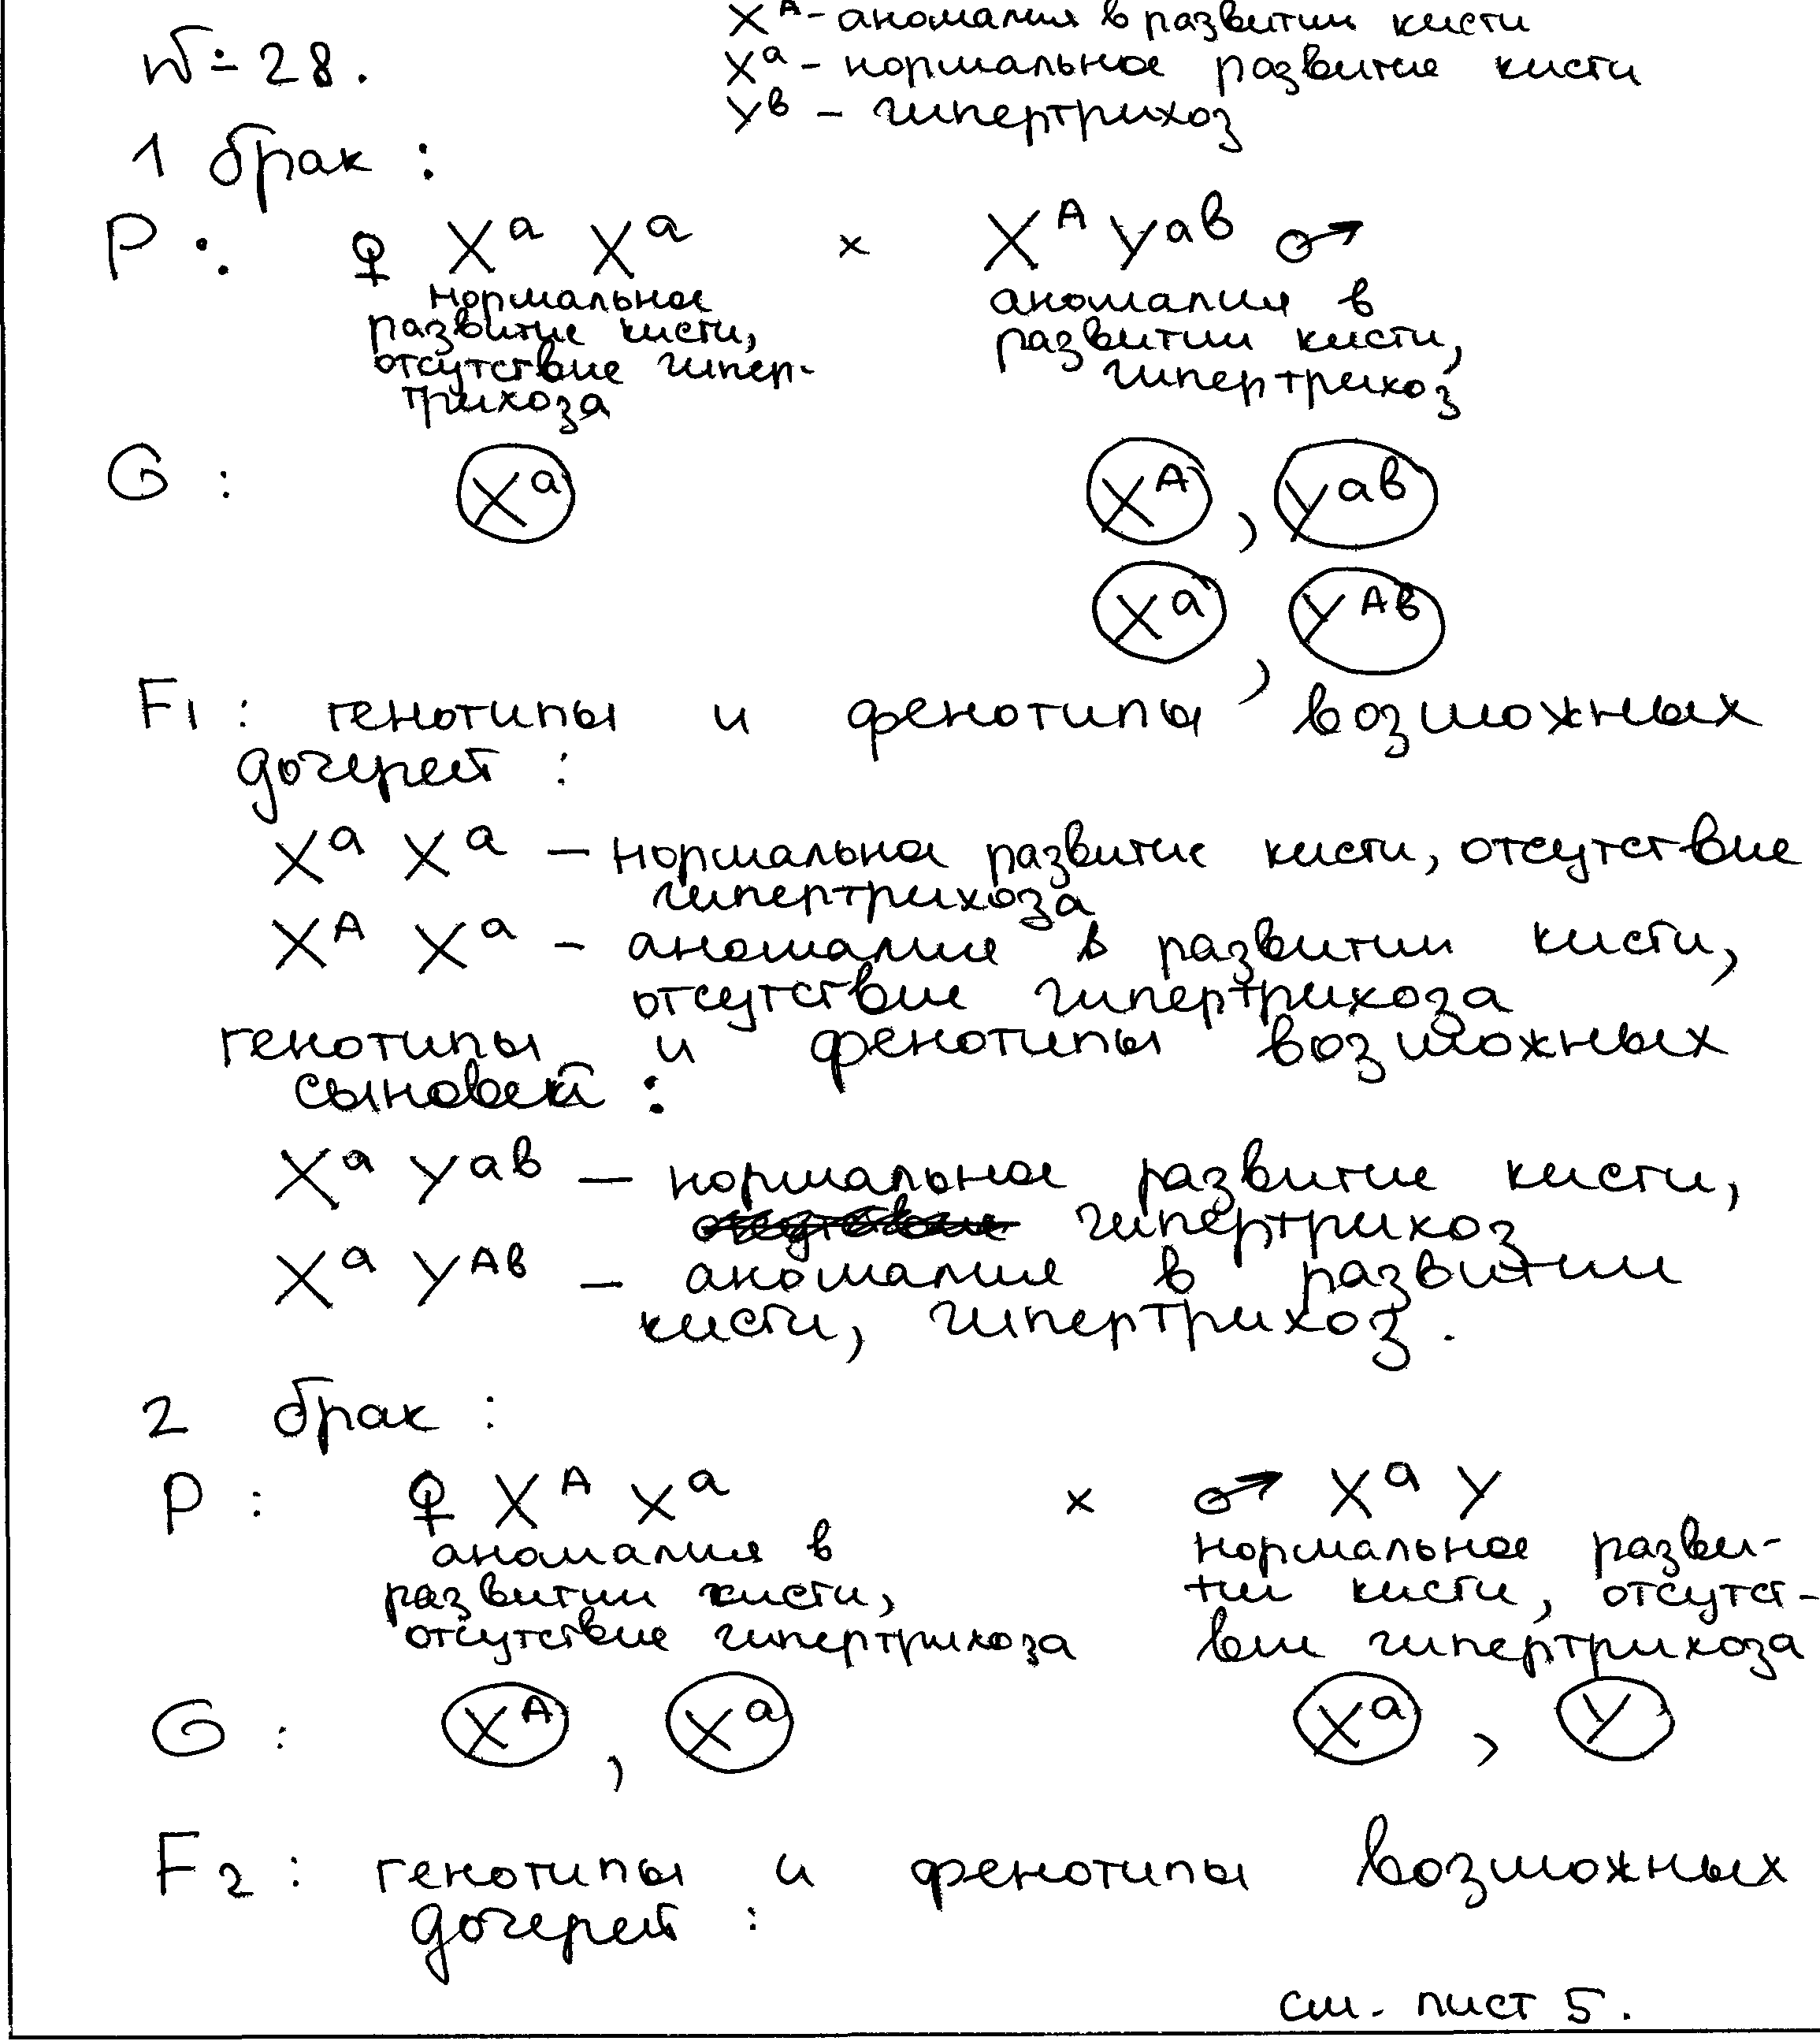 X^A - аномалия в развитии кисти
X^a - нормальное развитие кисти
Y^в - гипертрихоз
№ 28.
1 брак :
P : ♀ X^a X^a × X^A Y^ав ♂
нормальное развитие кисти, отсутствие гипер-трихоза
аномалия в развитии кисти, гипертрихоз
G : X^a X^A , Y^ав
X^a , Y^Ав
F1 : генотипы и фенотипы возможных
дочерей :
X^a X^a — нормальное развитие кисти, отсутствие
гипертрихоза
X^A X^a - аномалия в развитии кисти,
отсутствие гипертрихоза
генотипы и фенотипы возможных
сыновей :
X^a Y^ав — нормальное развитие кисти,
гипертрихоз
X^a Y^Ав — аномалия в развитии
кисти, гипертрихоз .
2 брак :
P : ♀ X^A X^a × ♂ X^a Y
аномалия в
развитии кисти,
отсутствие гипертрихоза
нормальное разви-
тии кисти, отсутст-
вии гипертрихоза
G : X^A , X^a X^a , Y
F2 : генотипы и фенотипы возможных
дочерей :
см. лист 5.